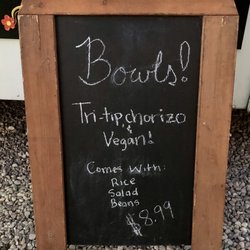 Bowls!
Tri-tip, chorizo
&
Vegan!
Comes with:
Rice
Salad
Beans
$8.99